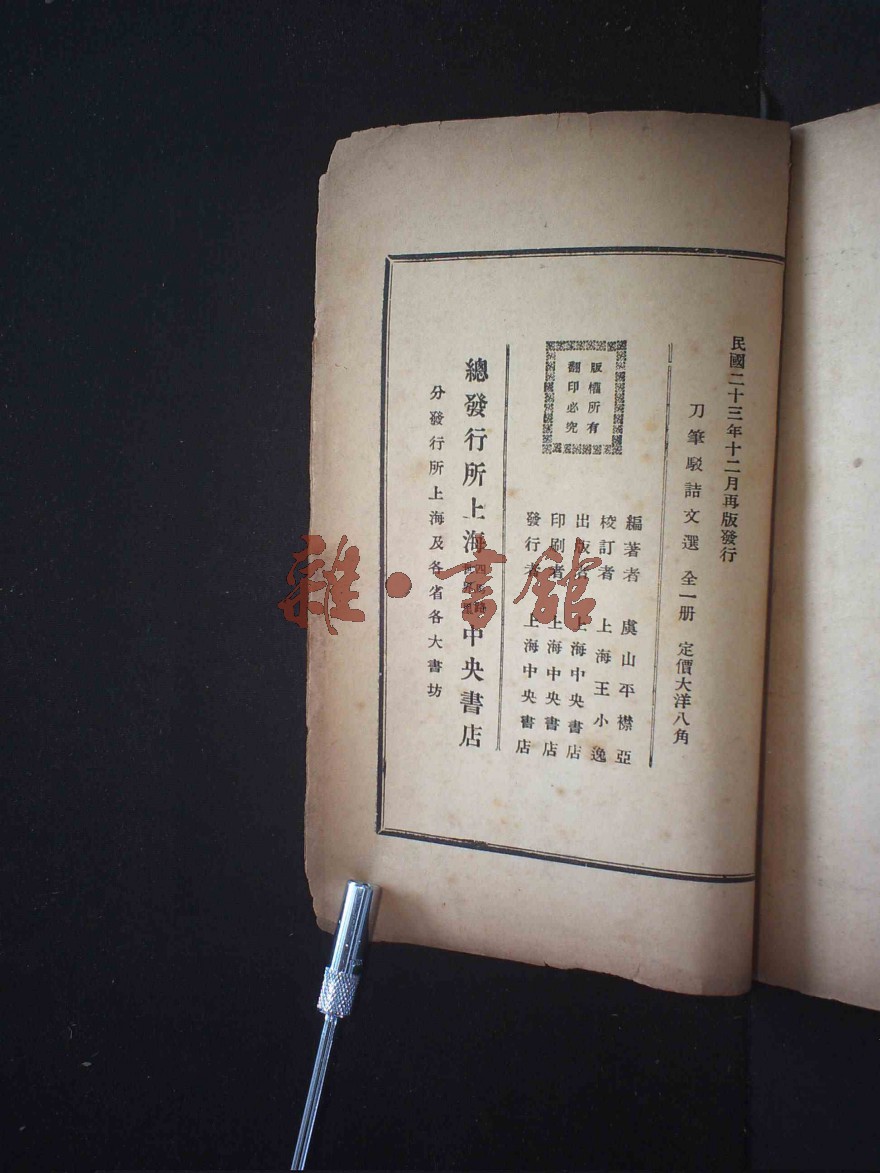 民國二十三年十二月再版發行
刀筆駁詰文選 全一册 定價大洋八角
版權所有
翻印必究
編著者 虞山平襟亞
校訂者 上海王小逸
出版者 上海中央書店
印刷者 上海中央書店
發行者 上海中央書店
總發行所上海四馬路世界里中央書店
分發行所上海及各省各大書坊
雜·書館